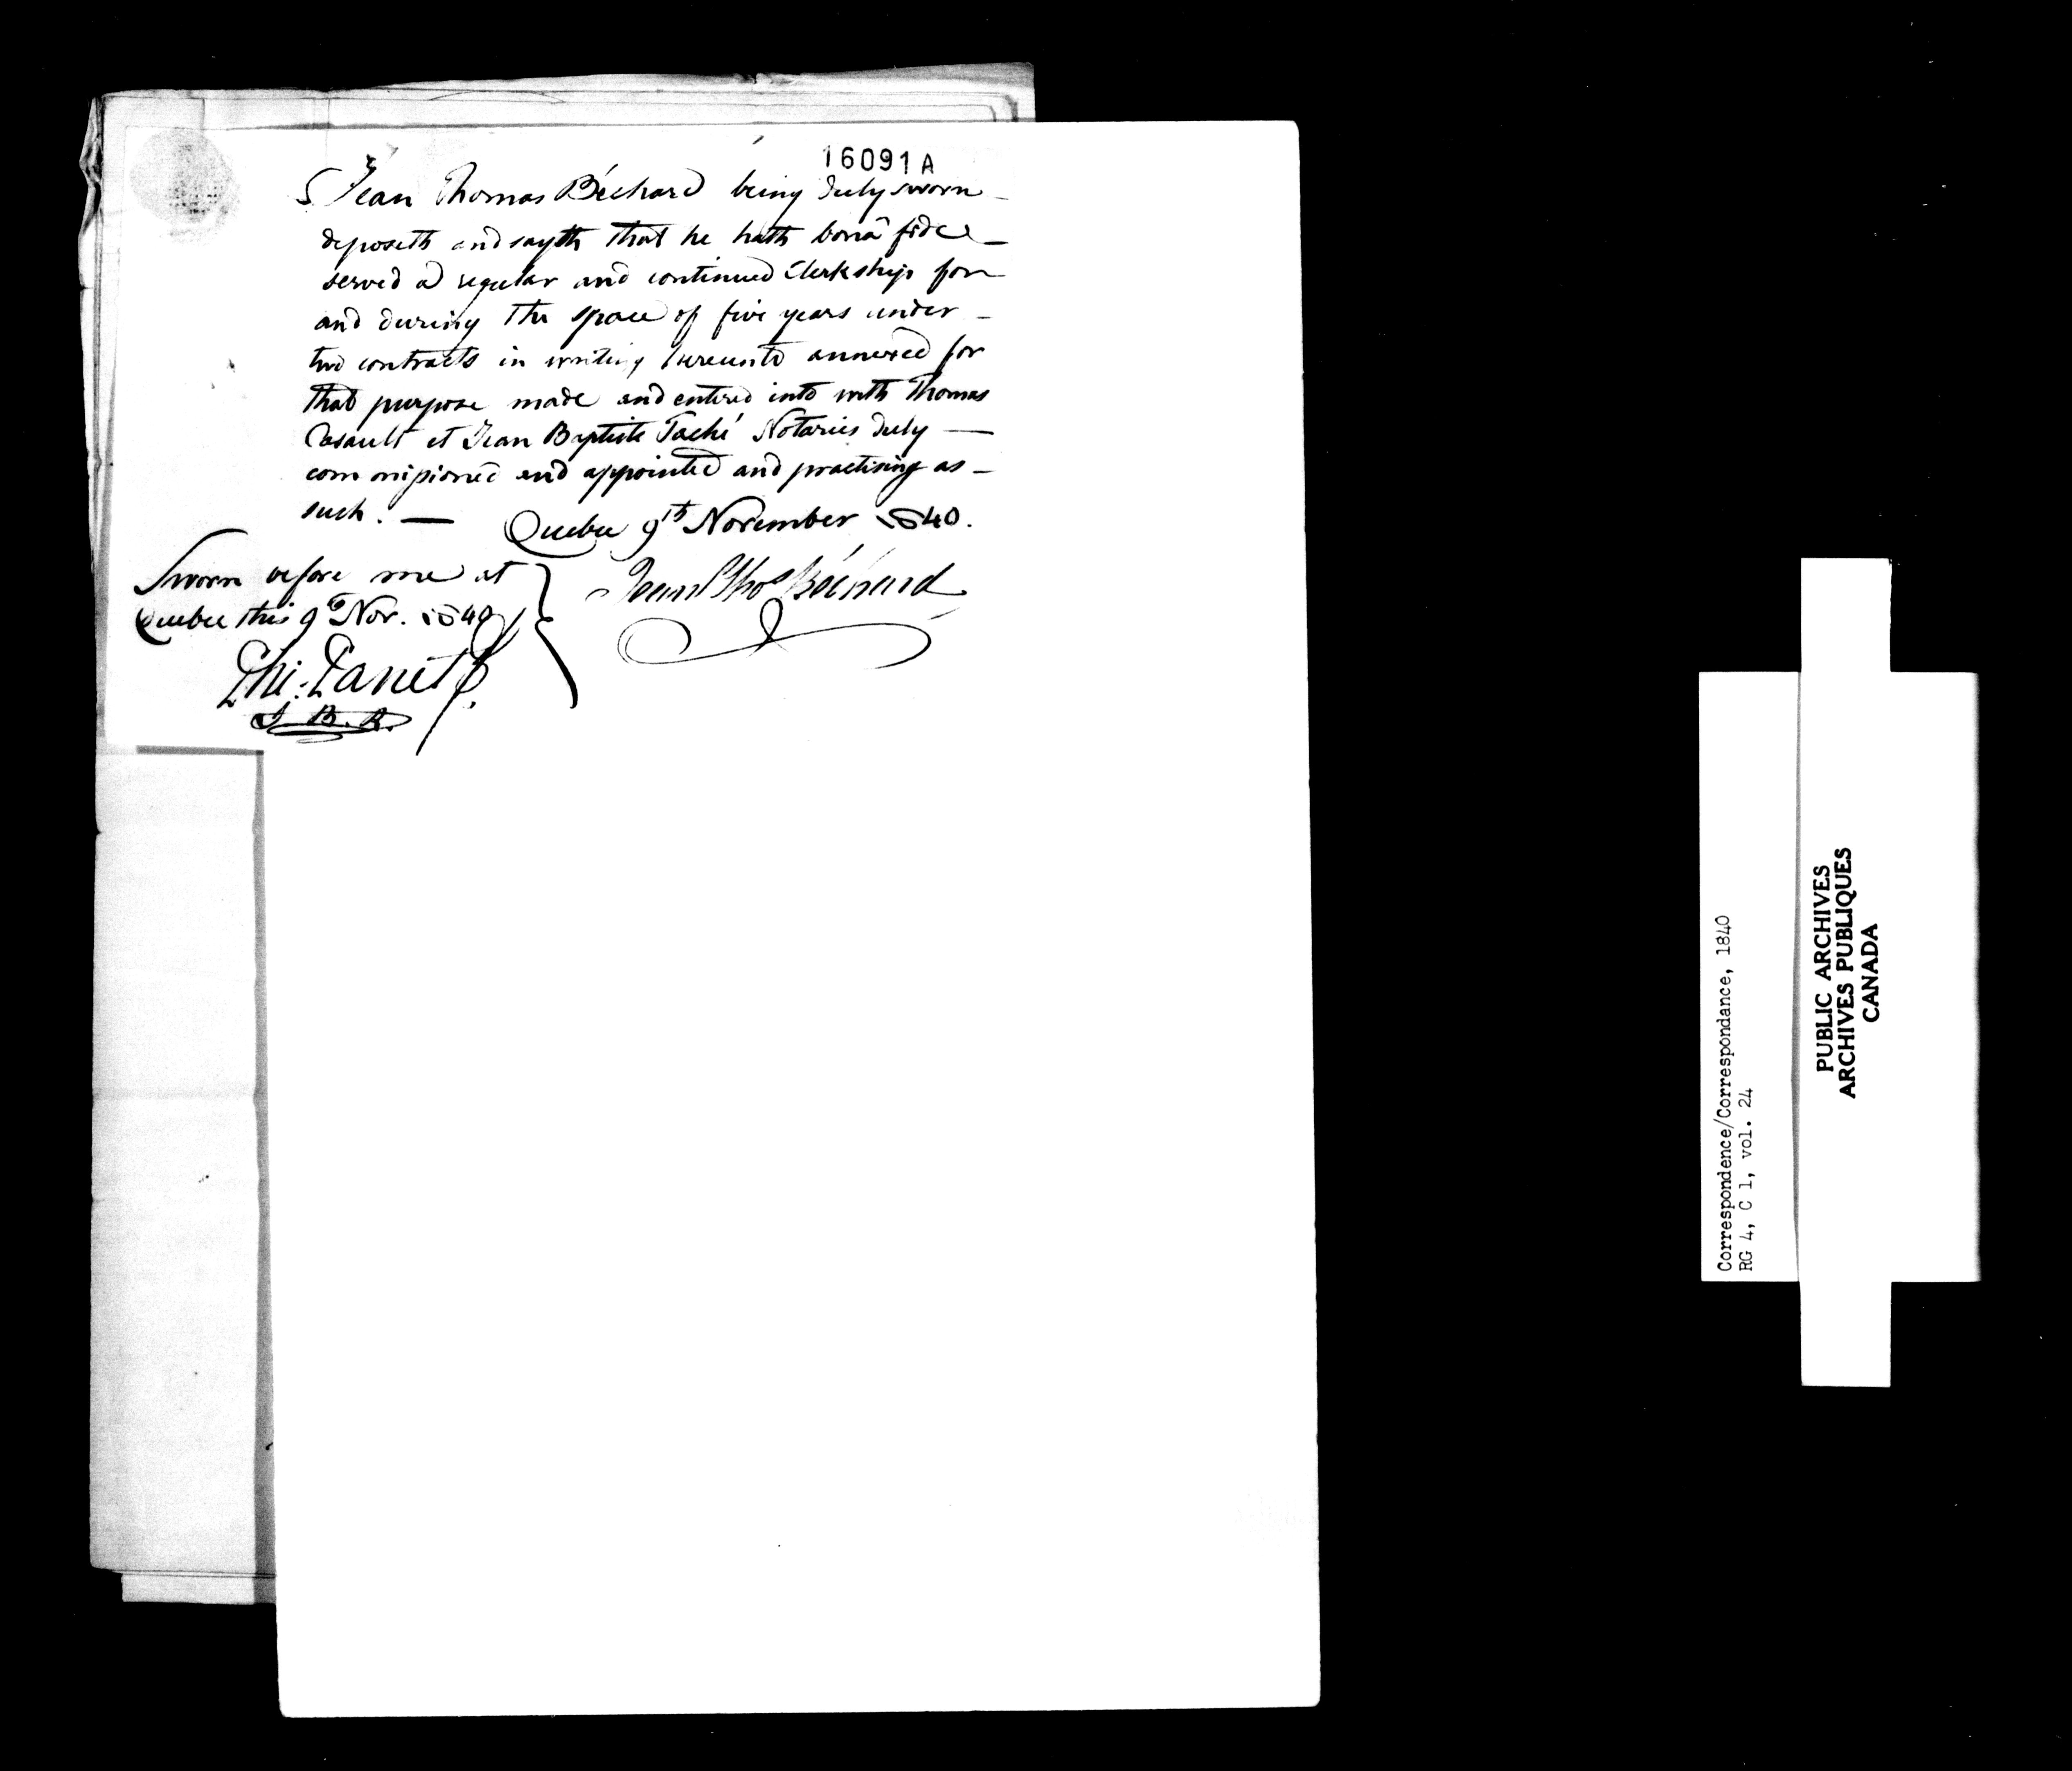 16091 A
Jean Thomas Béchard being duly sworn
deposeth and sayth that he hath bonâ fide
served a regular and continued Clerkship for
and during the space of five years under
two contracts in writing hereunto annexed for
that purpose made and entered into with Thomas
Casault et Jean Baptiste Taché Notaries duly —
commissioned and appointed and practising as
such. — Quebec 9th November 1840.
Sworn before me at
Quebec this 9th Nov. 1840
Jean Thos Béchard
Phi: Panet
J. B. R.
Correspondence/Correspondance, 1840
RG 4, C 1, vol. 24
PUBLIC ARCHIVES
ARCHIVES PUBLIQUES
CANADA